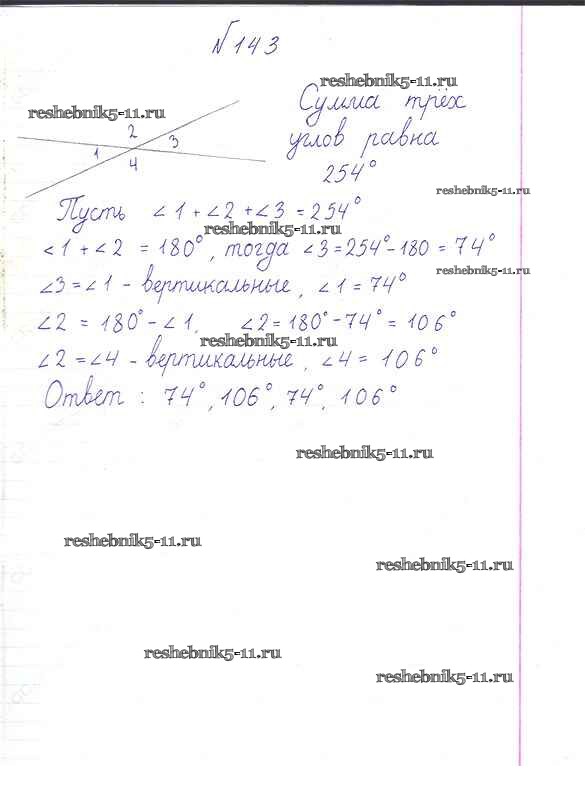 № 143
reshebnik5-11.ru
Сумма трёх
reshebnik5-11.ru
2
3
углов равна
1
4
254°
reshebnik5-11.ru
Пусть ∠1 + ∠2 + ∠3 = 254°
reshebnik5-11.ru
∠1 + ∠2 = 180°, тогда ∠3 = 254° - 180 = 74°
reshebnik5-11.ru
∠3 = ∠1 - вертикальные, ∠1 = 74°
∠2 = 180° - ∠1, ∠2 = 180° - 74° = 106°
reshebnik5-11.ru
∠2 = ∠4 - вертикальные, ∠4 = 106°
Ответ : 74°, 106°, 74°, 106°
reshebnik5-11.ru
reshebnik5-11.ru
reshebnik5-11.ru
reshebnik5-11.ru
reshebnik5-11.ru